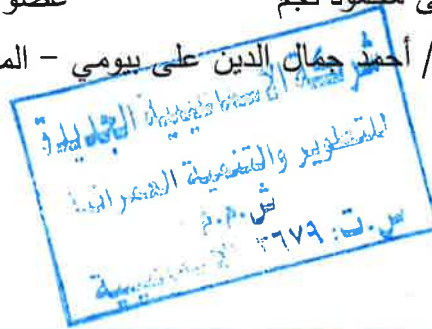 محمود نجم
عضو
/ أحمد جمال الدين على بيومي - الم
شركة الإسماعيلية الجديدة
للتطوير والتنمية العمرانية
ش.م.م
س.ت: ٣٦٧٩ الإسماعيلية